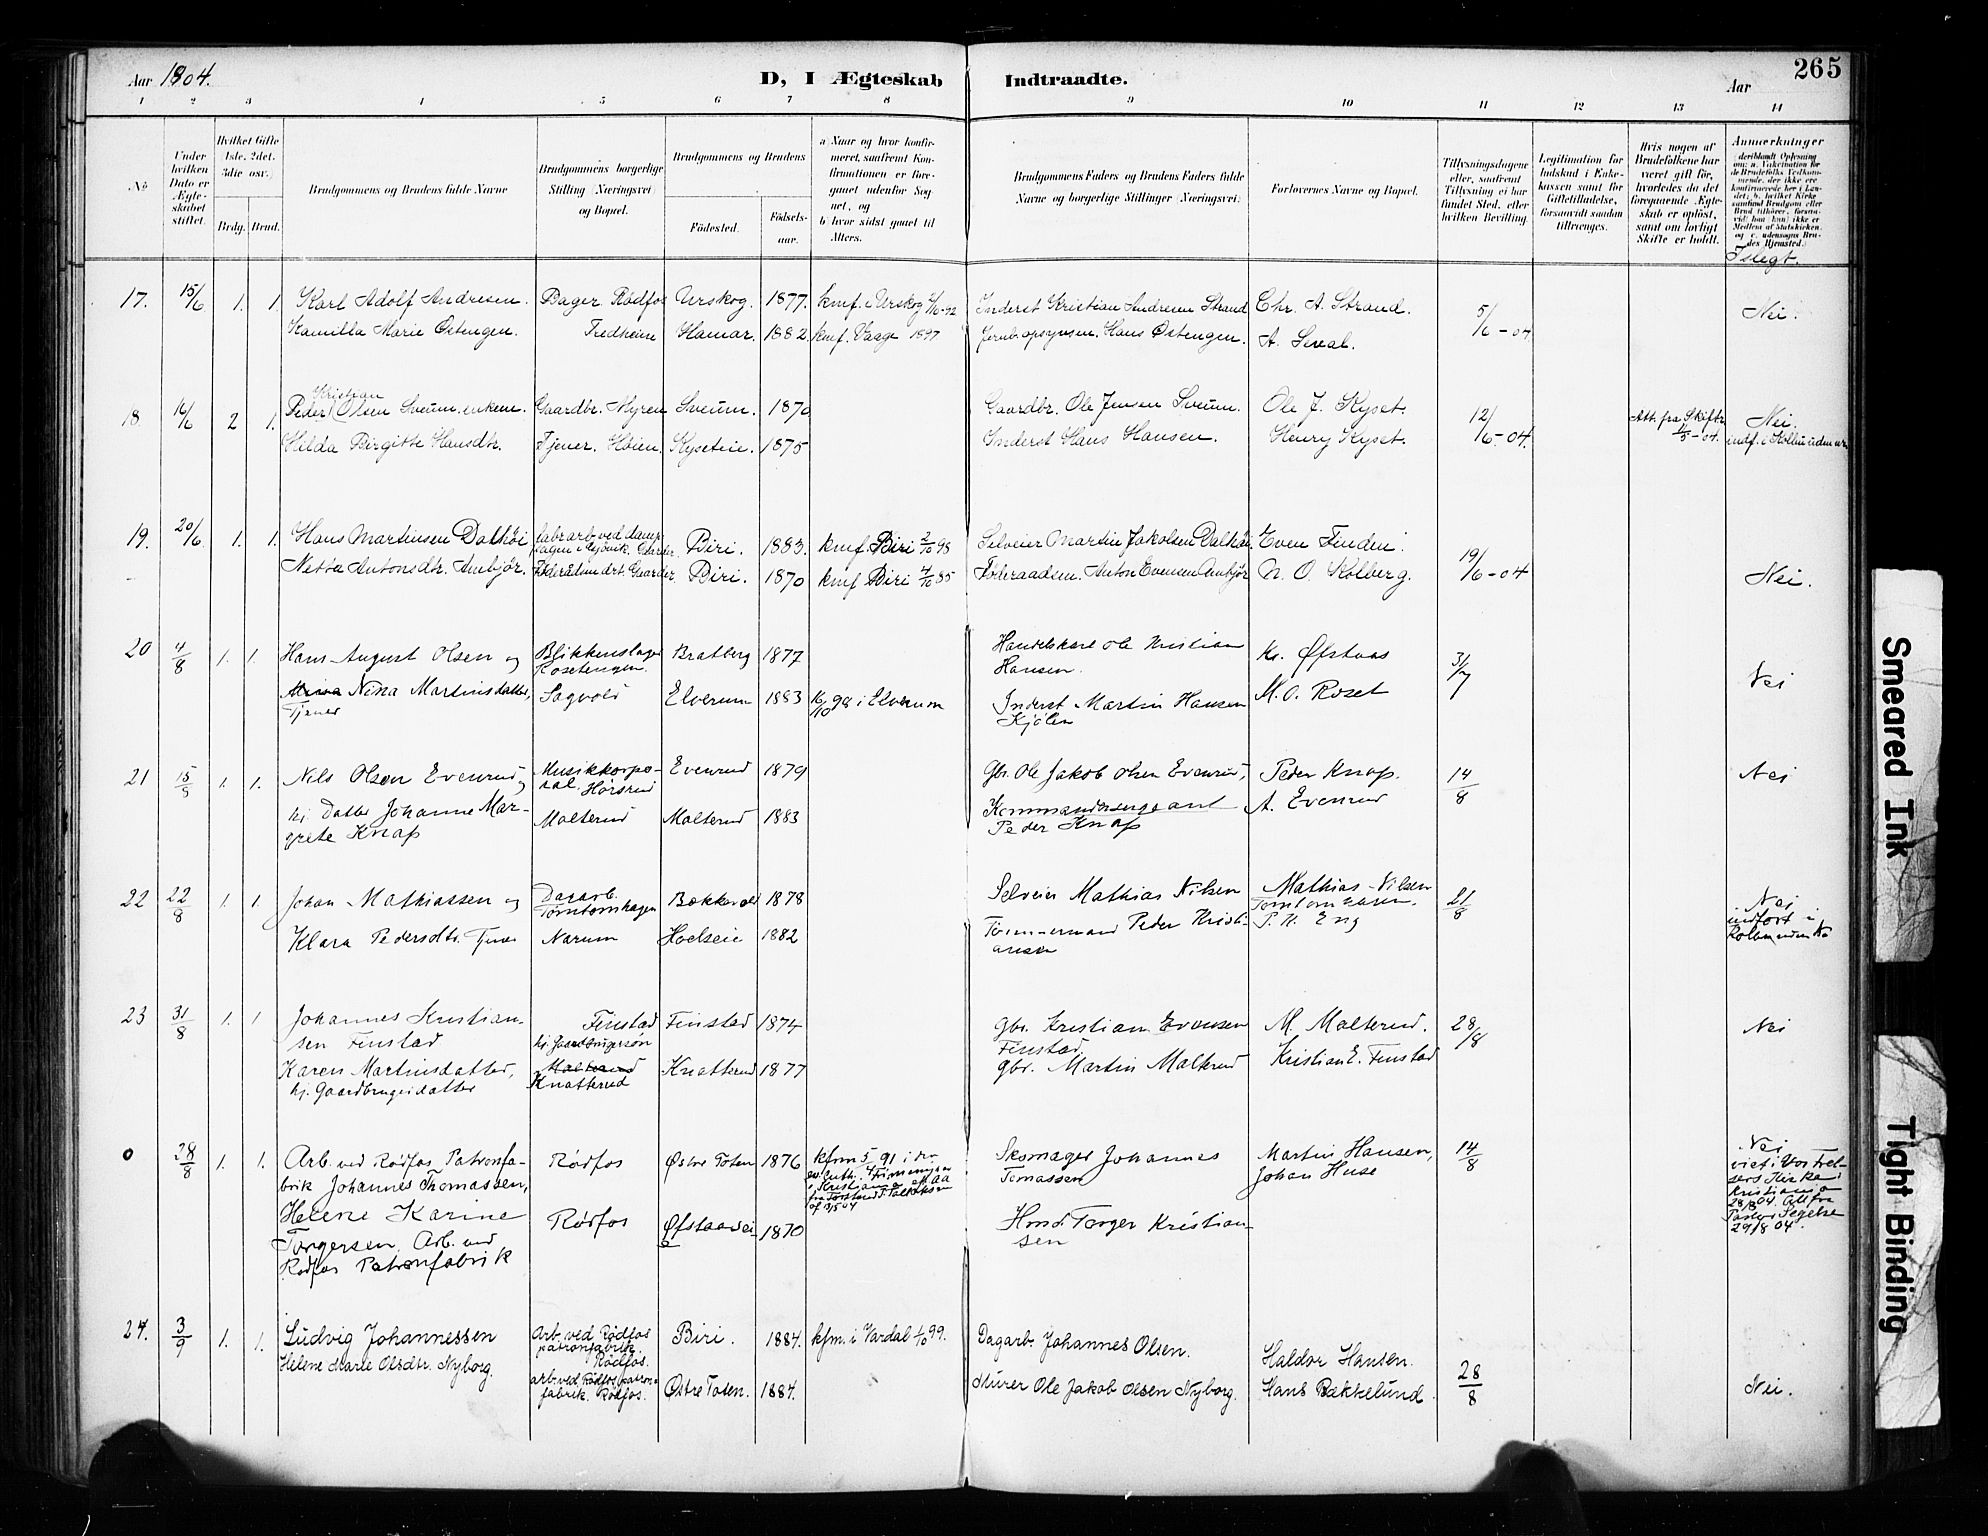 Aar 1904.
D, I Ægteskab Indtraadte.
Aar
265
1 2 3 4 5 6 7 8 9 10 11 12 13 14
No
Under hvilken Dato er Ægteskabet stiftet.
Hvilket Gifte 1ste. 2det. 3die osv.
Brdg. Brud.
Brudgommens og Brudens fulde Navne
Brudgommens borgerlige Stilling (Næringsvei) og Bopæl.
Brudgommens og Brudens
Fødested.
Fødselsaar.
a) Naar og hvor konfirmeret, saafremt Konfirmationen er foregaaet udenfor Sognet, og
b) hvor sidst gaaet til Alters.
Brudgommens Faders og Brudens Faders fulde Navne og borgerlige Stillinger (Næringsvei).
Forlovernes Navne og Bopæl.
Tillysningsdagene eller, saafremt Tillysning ei har fundet Sted, efter hvilken Bevilling.
Legitimation for Indskud i Enkekassen samt for Giftetilladelse, forsaavidt saadan tiltrænges.
Hvis nogen af Brudefolkene har været gift før, hvorledes da det foregaaende Ægteskab er opløst, samt om lovligt Skifte er holdt.
Anmerkninger
Islegt.
17. 15/6 1. 1. Karl Adolf Andresen. Bager Rødfos Urskog. 1877. kmf. Urskog 2/10-92 Inderst Kristian Andresen Strand Chr. A. Strand. 5/6-04 Nei.
Kamilla Marie Østengen. Fredheim Hamar. 1882. kmf. Vaage 1897 Jernb.opsynsm. Hans Østengen. A. Seval.
18. 16/6 2 1. Peder Kristian Olsen Sveum. enkem. Gaardbr. Myren Sveum. 1870 Gaardbr. Ole Jensen Sveum. Ole J. Kyset. 12/6-04. Att. fra Skiftr. 11/5-04. Nei.
Hilda Birgitte Hansdtr. Tjener. Høien. Kyseteie. 1875 Inderst Hans Hansen. Henry Kyset. indf. i Kolbu uden nr
19. 20/6 1. 1. Hans Martinsen Dalhøi fabrarb. ved Gjøvik. Gaarder Biri. 1883. kmf. Biri 2/10 98 Selveier Martin Jakobsen Dalhøi Even Finden. 19/6-04 Nei.
Netta Antonsdtr. Ambjør. Gaarder. Biri. 1870 kmf Biri 4/10 85 Føderaadsm. Anton Evensen Ambjør N. O. Kolberg.
20 4/8 1. 1. Hans August Olsen og Blikkenslager Rosetengen. Bratberg 1877 Handelskarl Ole Kristian Hansen. Kr. Øfstaas 31/7 Nei
Nina Martinsdatter, Tjener Sagvold Elverum 1883 16/10 98 i Elverum Inderst Martin Hansen Kjølen M. O. Roset
21 15/8 1. 1. Nils Olsen Evenrud, Musikkorporal, Hørsrud Evenrud 1879 Gbr. Ole Jakob Olsen Evenrud, Peder Knap. 14/8 Nei
hj. Datter Johanne Margrete Knap Malterud Malterud 1883 Kommandersergeant Peder Knap A. Evenrud
22 22/8 1. 1. Johan Mathiassen og Dagarb. Tømtomhagen Bækkevold 1878 Selveier Mathias Nilsen Mathias Nilsen 21/8 Nei
Klara Pedersdtr. Tjener Narum Hoelseie 1882 Tømmermand Peder Kristiansen P. K. Eng indført i Kolbu uden No
23 31/8 1. 1 Johannes Kristiansen Finstad Finstad hj. Gaardbrugersøn Finstad 1874 Gbr. Kristian Evensen Finstad M. Malterud. 28/8 Nei
Karen Martinsdatter, hj. Gaardbrugerdatter Malterud Knatterud Knatterud 1877 Gbr. Martin Malterud Kristian E. Finstad
0 28/8 1. 1. Arb. ved Rødfos Patronfabrik Johannes Thomassen, Rødfos Østre Toten 1876 kfm 5/4 91 i den ev. luth. Frimenighed i Kristiania att. fra Forstander af 13/5 04 Skomager Johannes Tomassen Martin Hansen, Johan Huse 14/8 Nei
viet i Vor Frelsers Kirke i Kristiania 28/8 04. Att fra Pastor Segelcke 29/8 04.
Helene Karine Torgersen. Arb. ved Rødfos Patronfabrik Rødfos Øfstaaseie 1870 Hmd. Torger Kristiansen
24. 3/9 1. 1. Ludvig Johannessen Arb. ved Rødfos patronfabrik. Rødfos. Biri. 1884. kfm. i Vardal 1/10 99. Dagarb. Johannes Olsen. Haldor Hansen. 28/8 Nei.
Helene Marie Olsdtr. Nyborg. arb. ved Rødfos patronfabrik. Rødfos. Østre Toten. 1884. Murer Ole Jakob Olsen Nyborg. Hans Bækkelund.
Smeared Ink
Tight Binding